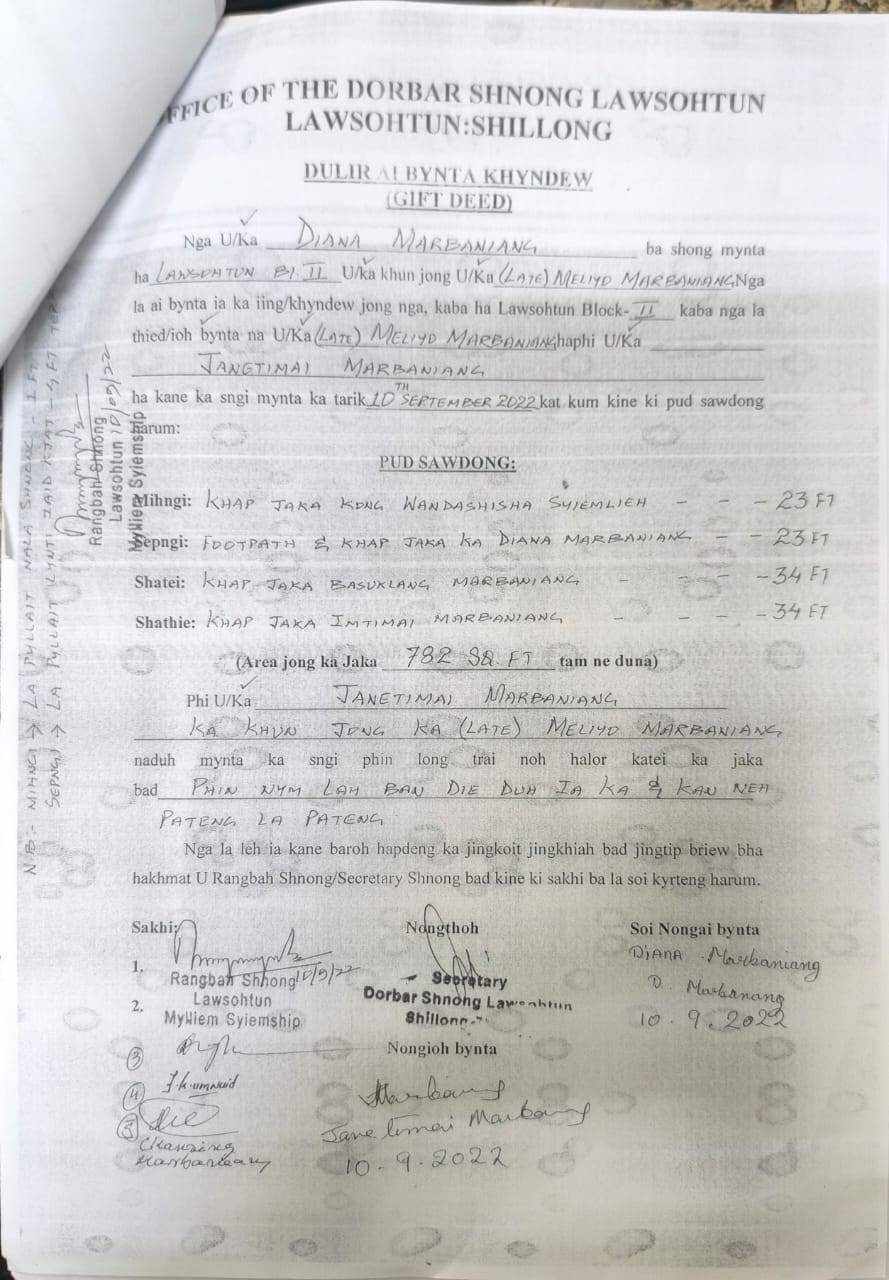 OFFICE OF THE DORBAR SHNONG LAWSOHTUN
LAWSOHTUN:SHILLONG
DULIR AI BYNTA KHYNDEW
(GIFT DEED)
Nga U/Ka DIANA MARBANIANG ba shong mynta
ha LAWSOHTUN Bl. II U/ka khun jong U/Ka (LATE) MELIYD MARBANIANG Nga
la ai bynta ia ka iing/khyndew jong nga, kaba ha Lawsohtun Block- II kaba nga la
thied/ioh bynta na U/Ka (LATE) MELIYD MARBANIANG haphi U/Ka
JANETIMAI MARBANIANG
ha kane ka sngi mynta ka tarik 10TH SEPTEMBER 2022 kat kum kine ki pud sawdong
harum:
PUD SAWDONG:
Mihngi: KHAP JAKA KONG WANDASHISHA SYIEMLIEH - - - 23 FT
Sepngi: FOOTPATH & KHAP JAKA KA DIANA MARBANIANG - - 23 FT
Shatei: KHAP JAKA BASUKLANG MARBANIANG - - - - 34 FT
Shathie: KHAP JAKA IMTIMAI MARBANIANG - - - - 34 FT
(Area jong ka Jaka 782 SQ. FT tam ne duna)
Phi U/Ka JANETIMAI MARBANIANG
KA KHUN JONG KA (LATE) MELIYD MARBANIANG
naduh mynta ka sngi phin long trai noh halor katei ka jaka
bad PHIN NYM LAH BAN DIE DUH IA KA & KAN NEH
PATENG LA PATENG
Nga la leh ia kane baroh hapdeng ka jingkoit jingkhiah bad jingtip briew bha
hakhmat U Rangbah Shnong/Secretary Shnong bad kine ki sakhi ba la soi kyrteng harum.
Sakhi: Nongthoh Soi Nongai bynta
DIANA Marbaniang
1. 10/9/22
Rangbah Shnong Secretary D. Marbaniang
2. Lawsohtun Dorbar Shnong Lawsohtun
Mylliem Syiemship Shillong- 10.9.2022
3 Nongioh bynta
4
5 Janetimai Marbaniang
Marbaniang
10-9.2022
N.B:- MIHNGI → LA PYLLAIT NALA SHNONG - 1 FT
SEPNGI → LA PYLLAIT KYNTI IAID KJAT - 4 FT
Rangbah Shnong
Lawsohtun 10/09/22
Mylliem Syiemship